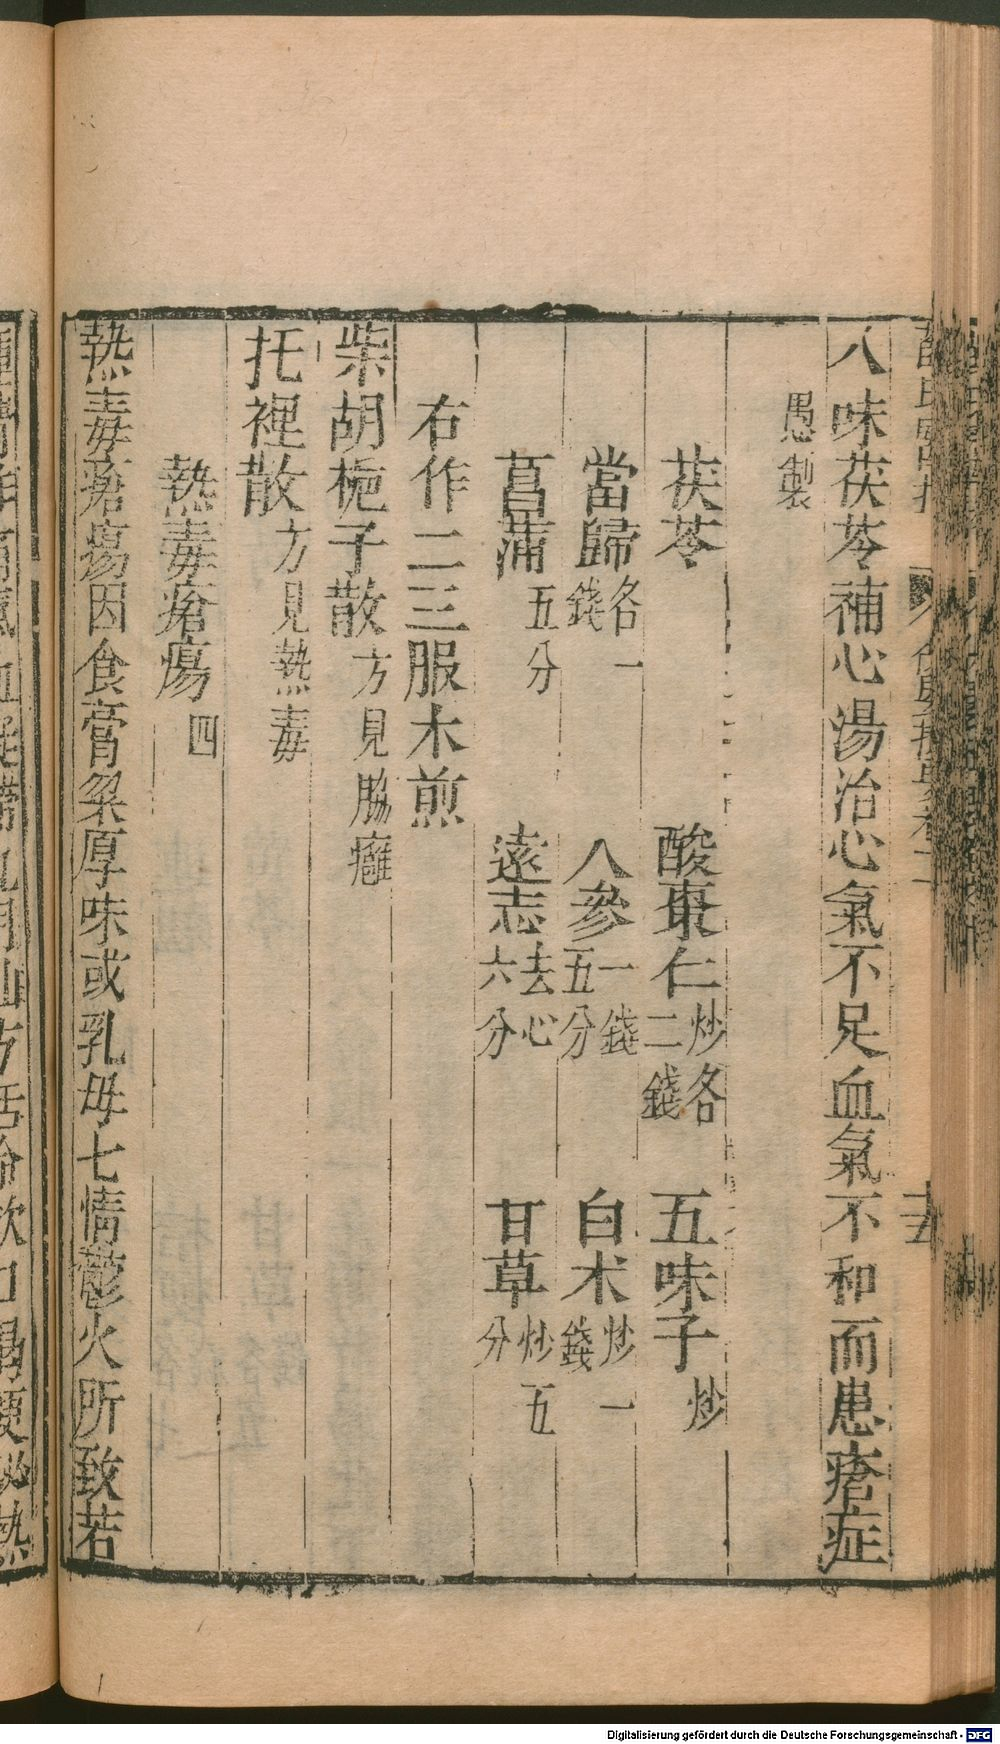 八味茯苓補心湯治心氣不足血氣不和而患瘡症
愚製
茯苓 酸棗仁炒各二錢 五味子炒
當歸各一錢 人參一錢五分 白朮炒一錢
菖蒲五分 遠志去心六分 甘草炒五分
右作二三服水煎
柴胡梔子散方見脇癰
托裡散方見熱毒
熱毒瘡瘍四
熱毒瘡瘍因食膏粱厚味或乳母七情鬱火所致若
Digitalisierung gefördert durch die Deutsche Forschungsgemeinschaft - DFG